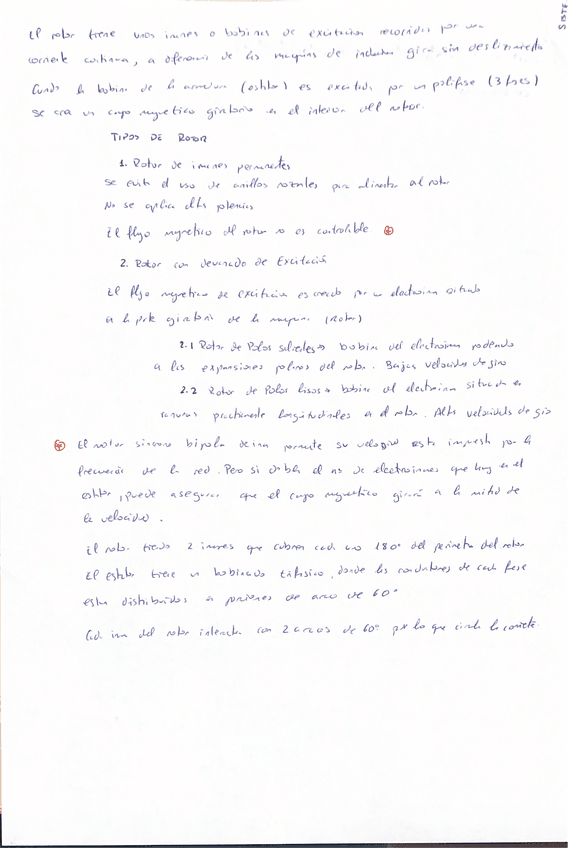 SISTE
El rotor tiene unos imanes o bobinas de excitación recorridas por una
corriente continua, a diferencia de las maquinas de inducción gira sin deslizamiento
Cuando la bobina de la armadura (estator) es excitada por un polifase (3 fases)
se crea un campo magnetico giratorio en el interior del rotor.
TIPOS DE ROTOR
1. Rotor de imanes permanentes
se evita el uso de anillos rozantes para alimentar al rotor
No se aplica altas potencias
El flujo magnetico del rotor no es controlable
2. Rotor con devanado de Excitación
El flujo magnetico de excitacion es creado por un electroiman situado
en la parte giratoria de la maquina (Rotor)
2.1 Rotor de Polos salientes → bobina del electroiman rodeando
a las expansiones polares del rotor. Bajas velocidades de giro
2.2 Rotor de Polos lisos → bobina del electroiman situada en
ranuras practicamente longitudinales en el rotor. Altas velocidades de giro
El motor sincrono bipolar de iman permanente su velocidad esta impuesta por la
frecuencia de la red. Pero si dobla el nº de electroimanes que hay en el
estator, puede asegurar que el campo magnetico girará a la mitad de
la velocidad.
El rotor tiene 2 imanes que cubren cada uno 180° del perimetro del rotor
El estator tiene un bobinado trifasico, donde los conductores de cada fase
estan distribuidos en porciones de arco de 60°
Cada iman del rotor interactua con 2 arcos de 60° por lo que circula la corriente.